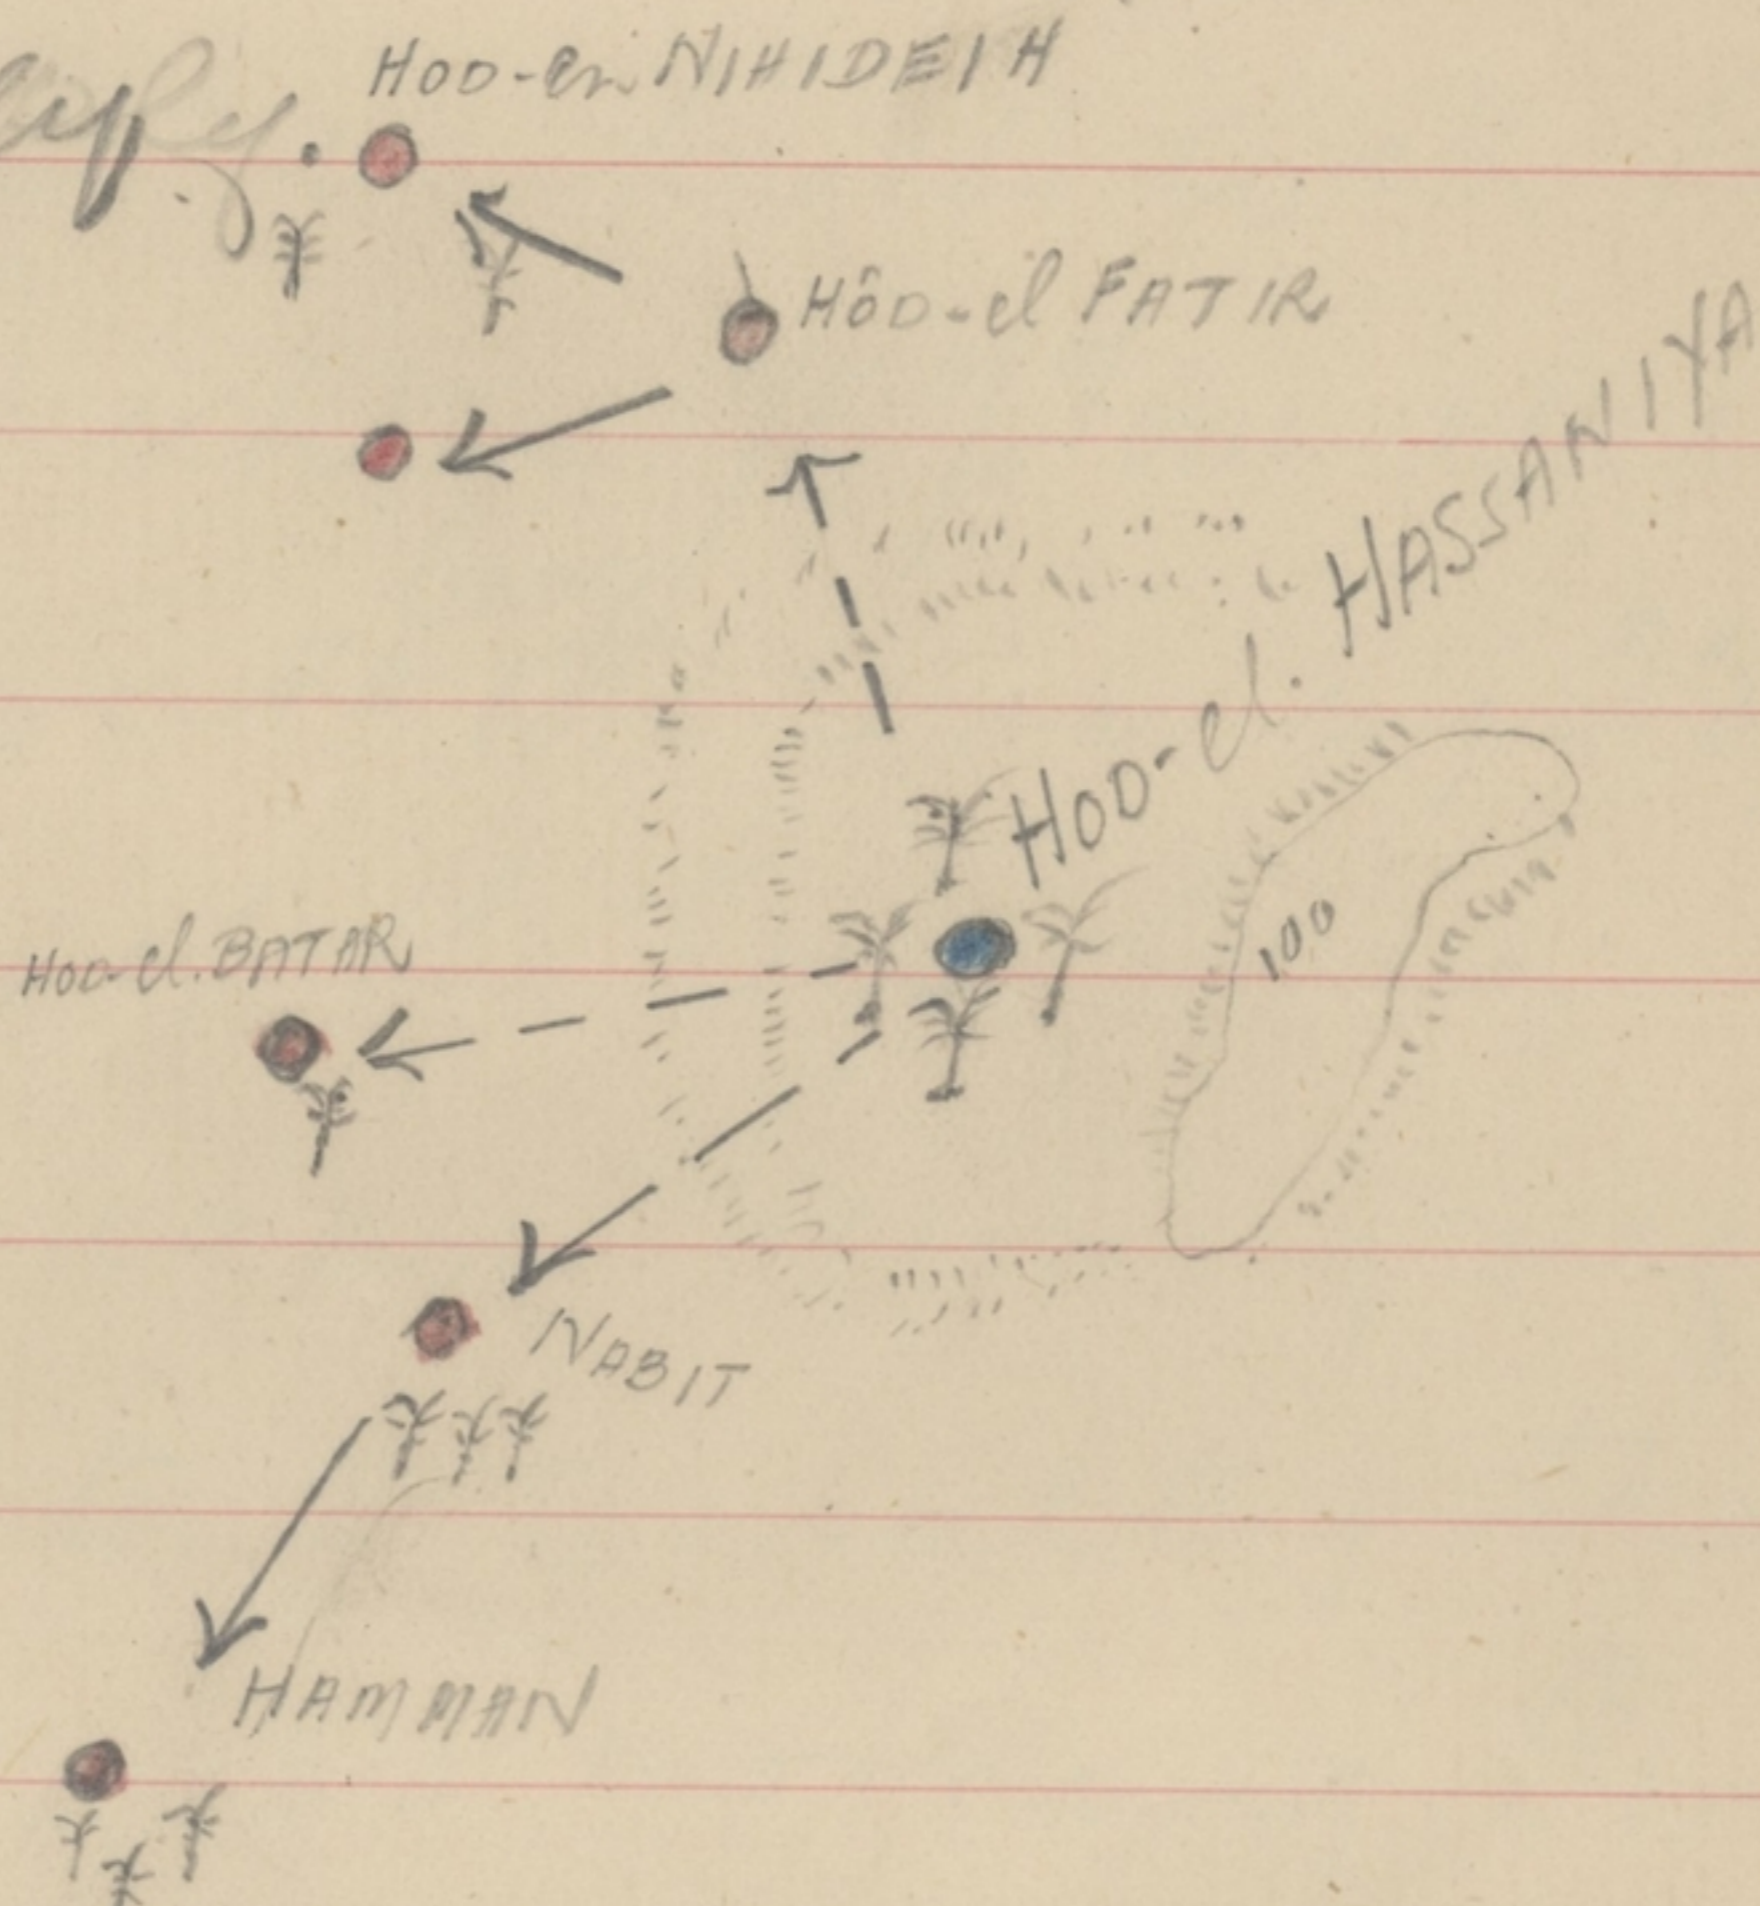 HOD-en NIHIDEIH
HÔD-el FATIR
HOD-el. HASSANIYA
100
HOD-el. BATAR
NABIT
HAMMAN